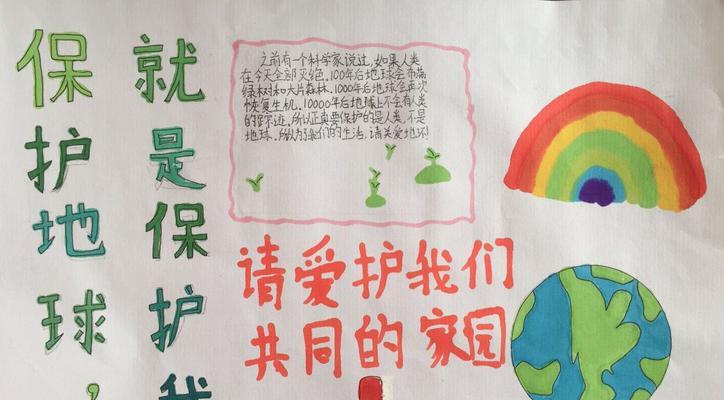 保护地球，
就是保护我
之前有一个科学家说过,如果人类
在今天全部灭绝.100年后地球会布满
绿树和大片森林.1000年后地球会再次
恢复生机.10000年后地球上不会有人类
的踪迹.所以正真要保护的是人类,不是
地球.所以为了我们的生活,请关爱地球!
请爱护我们
共同的家园